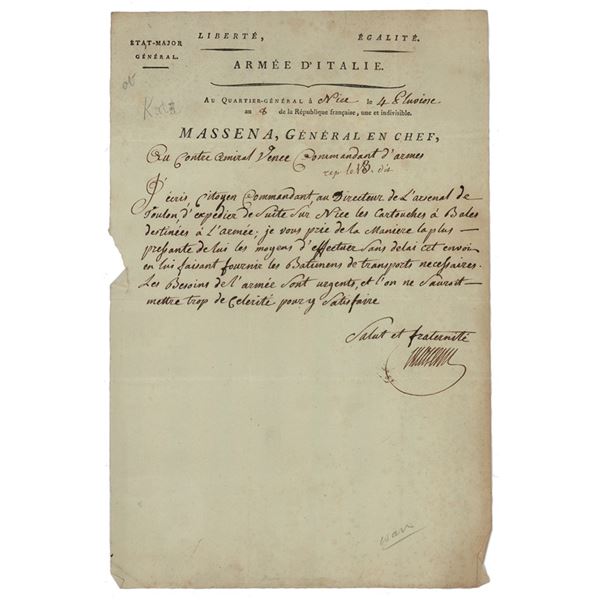 LIBERTÉ, ÉGALITÉ.
ÉTAT-MAJOR
GÉNÉRAL.
ARMÉE D'ITALIE.
Au Quartier-général à Nice le 4 Pluviose
au 8 de la République française, une et indivisible.
MASSENA, GÉNÉRAL EN CHEF,
Au Contre Amiral Vence Commandant d'armes
rep le 18. dit
J'écris, Citoyen Commandant, au Directeur de L'arsenal de
Toulon, d'expédier de Suite Sur Nice les Cartouches à Bales
destinées à L'armée; je vous prie de la Maniere la plus
pressante de lui les moyens d'effectuer Sans delai cet envoi
en lui faisant fournir les Batimens de transports necessaires.
Les Besoins de l'armée Sont urgents, et l'on ne Sauroit
mettre trop de Celerité pour y Satisfaire
Salut et fraternité
Massena